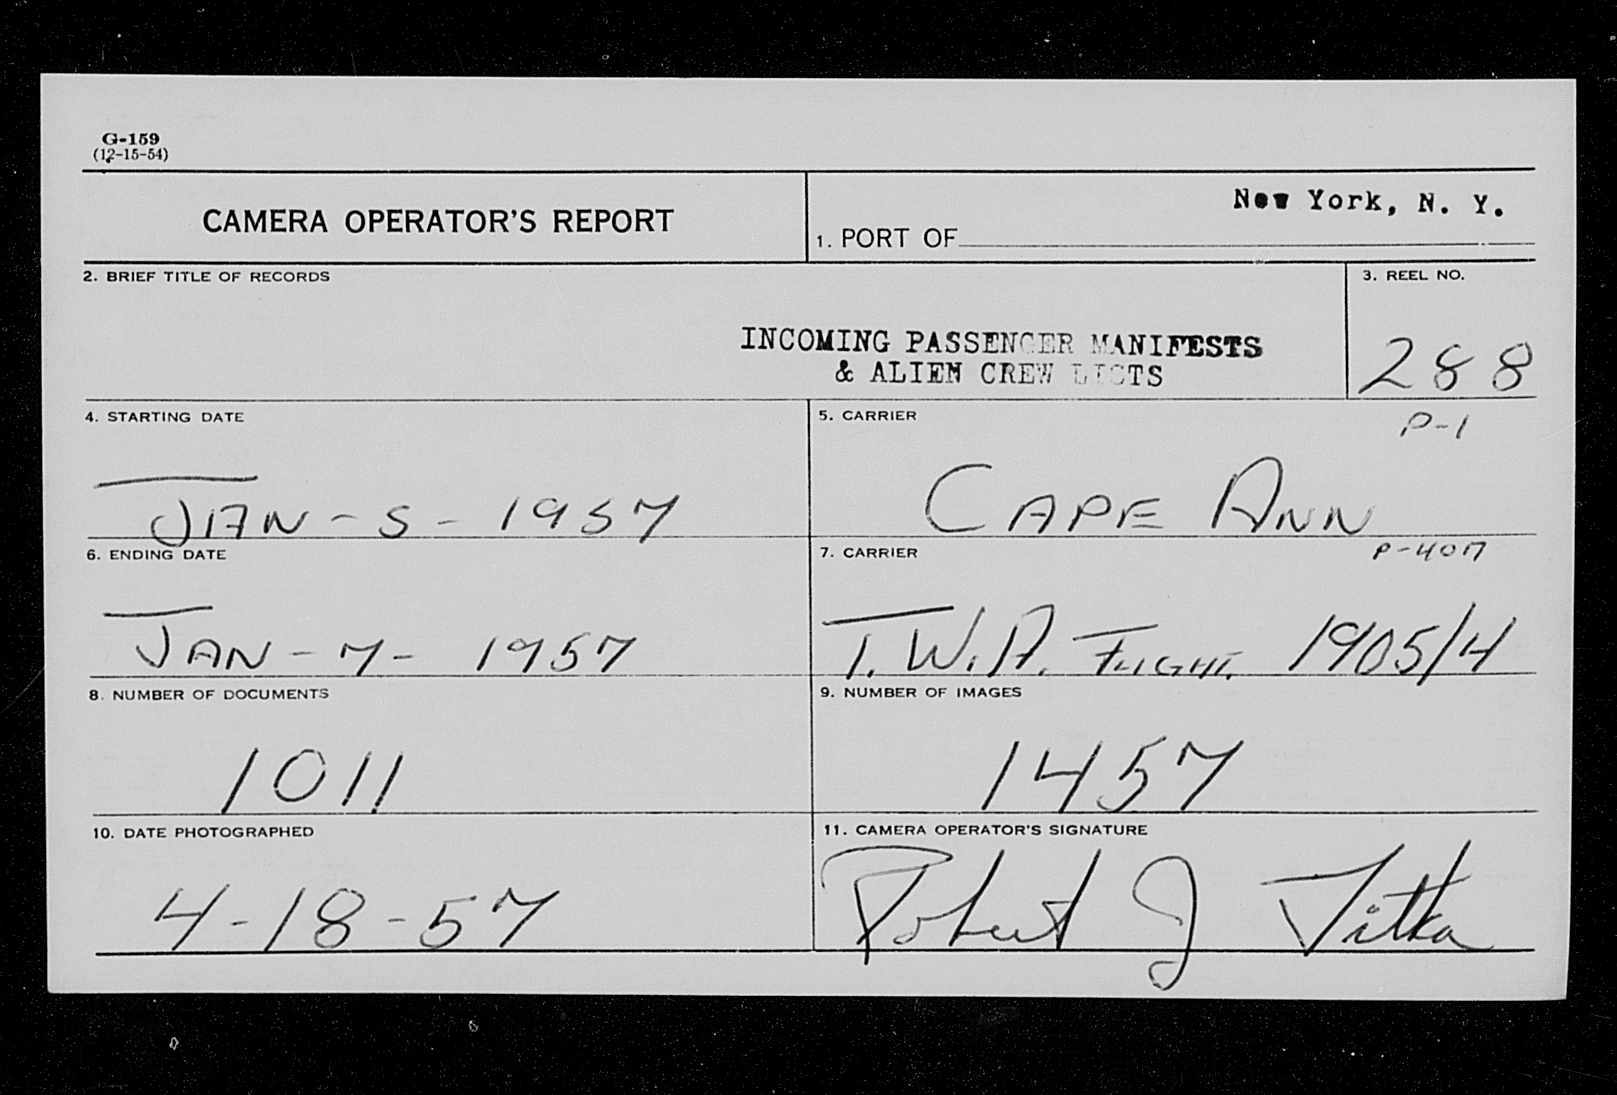 G-159
(12-15-54)
CAMERA OPERATOR'S REPORT
New York, N. Y.
1. PORT OF
2. BRIEF TITLE OF RECORDS
3. REEL NO.
INCOMING PASSENGER MANIFESTS
& ALIEN CREW LISTS
288
4. STARTING DATE
5. CARRIER
P-1
JAN-5-1957
CAPE ANN
6. ENDING DATE
7. CARRIER
P-407
JAN-7-1957
T.W.A. FLIGHT. 1905/4
8. NUMBER OF DOCUMENTS
9. NUMBER OF IMAGES
1011
1457
10. DATE PHOTOGRAPHED
11. CAMERA OPERATOR'S SIGNATURE
4-18-57
Robert J Vitka